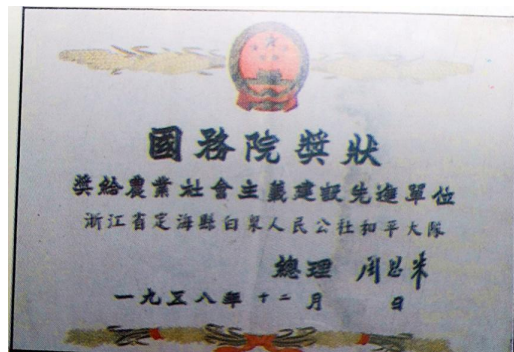 國務院獎狀
獎給農業社會主義建設先進單位
浙江省定海縣白泉人民公社和平大隊
總理 周恩来
一九五八年十二月 日